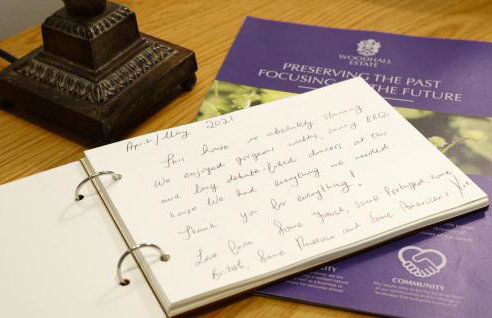 WOODHALL
ESTATE
PRESERVING THE PAST
FOCUSING THE FUTURE
April/May 2021
This house is absolutely stunning
We enjoyed gorgeous walks, sunny BBQs
and long debate-filled dinners at this
house. We had everything we needed.
Thank you for everything!
Love from some some Portuguese, some
British, some and some Americans!
COMMUNITY